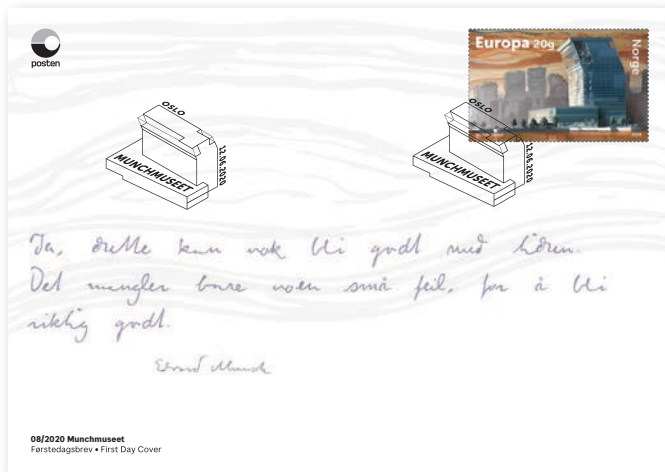 posten
Europa 20g
Norge
OSLO
12.06.2020
MUNCHMUSEET
OSLO
12.06.2020
MUNCHMUSEET
Ja, dette kan nok bli godt med tiden.
Det mangler bare noen små feil, for å bli
riktig godt.
Edvard Munch
08/2020 Munchmuseet
Førstedagsbrev • First Day Cover